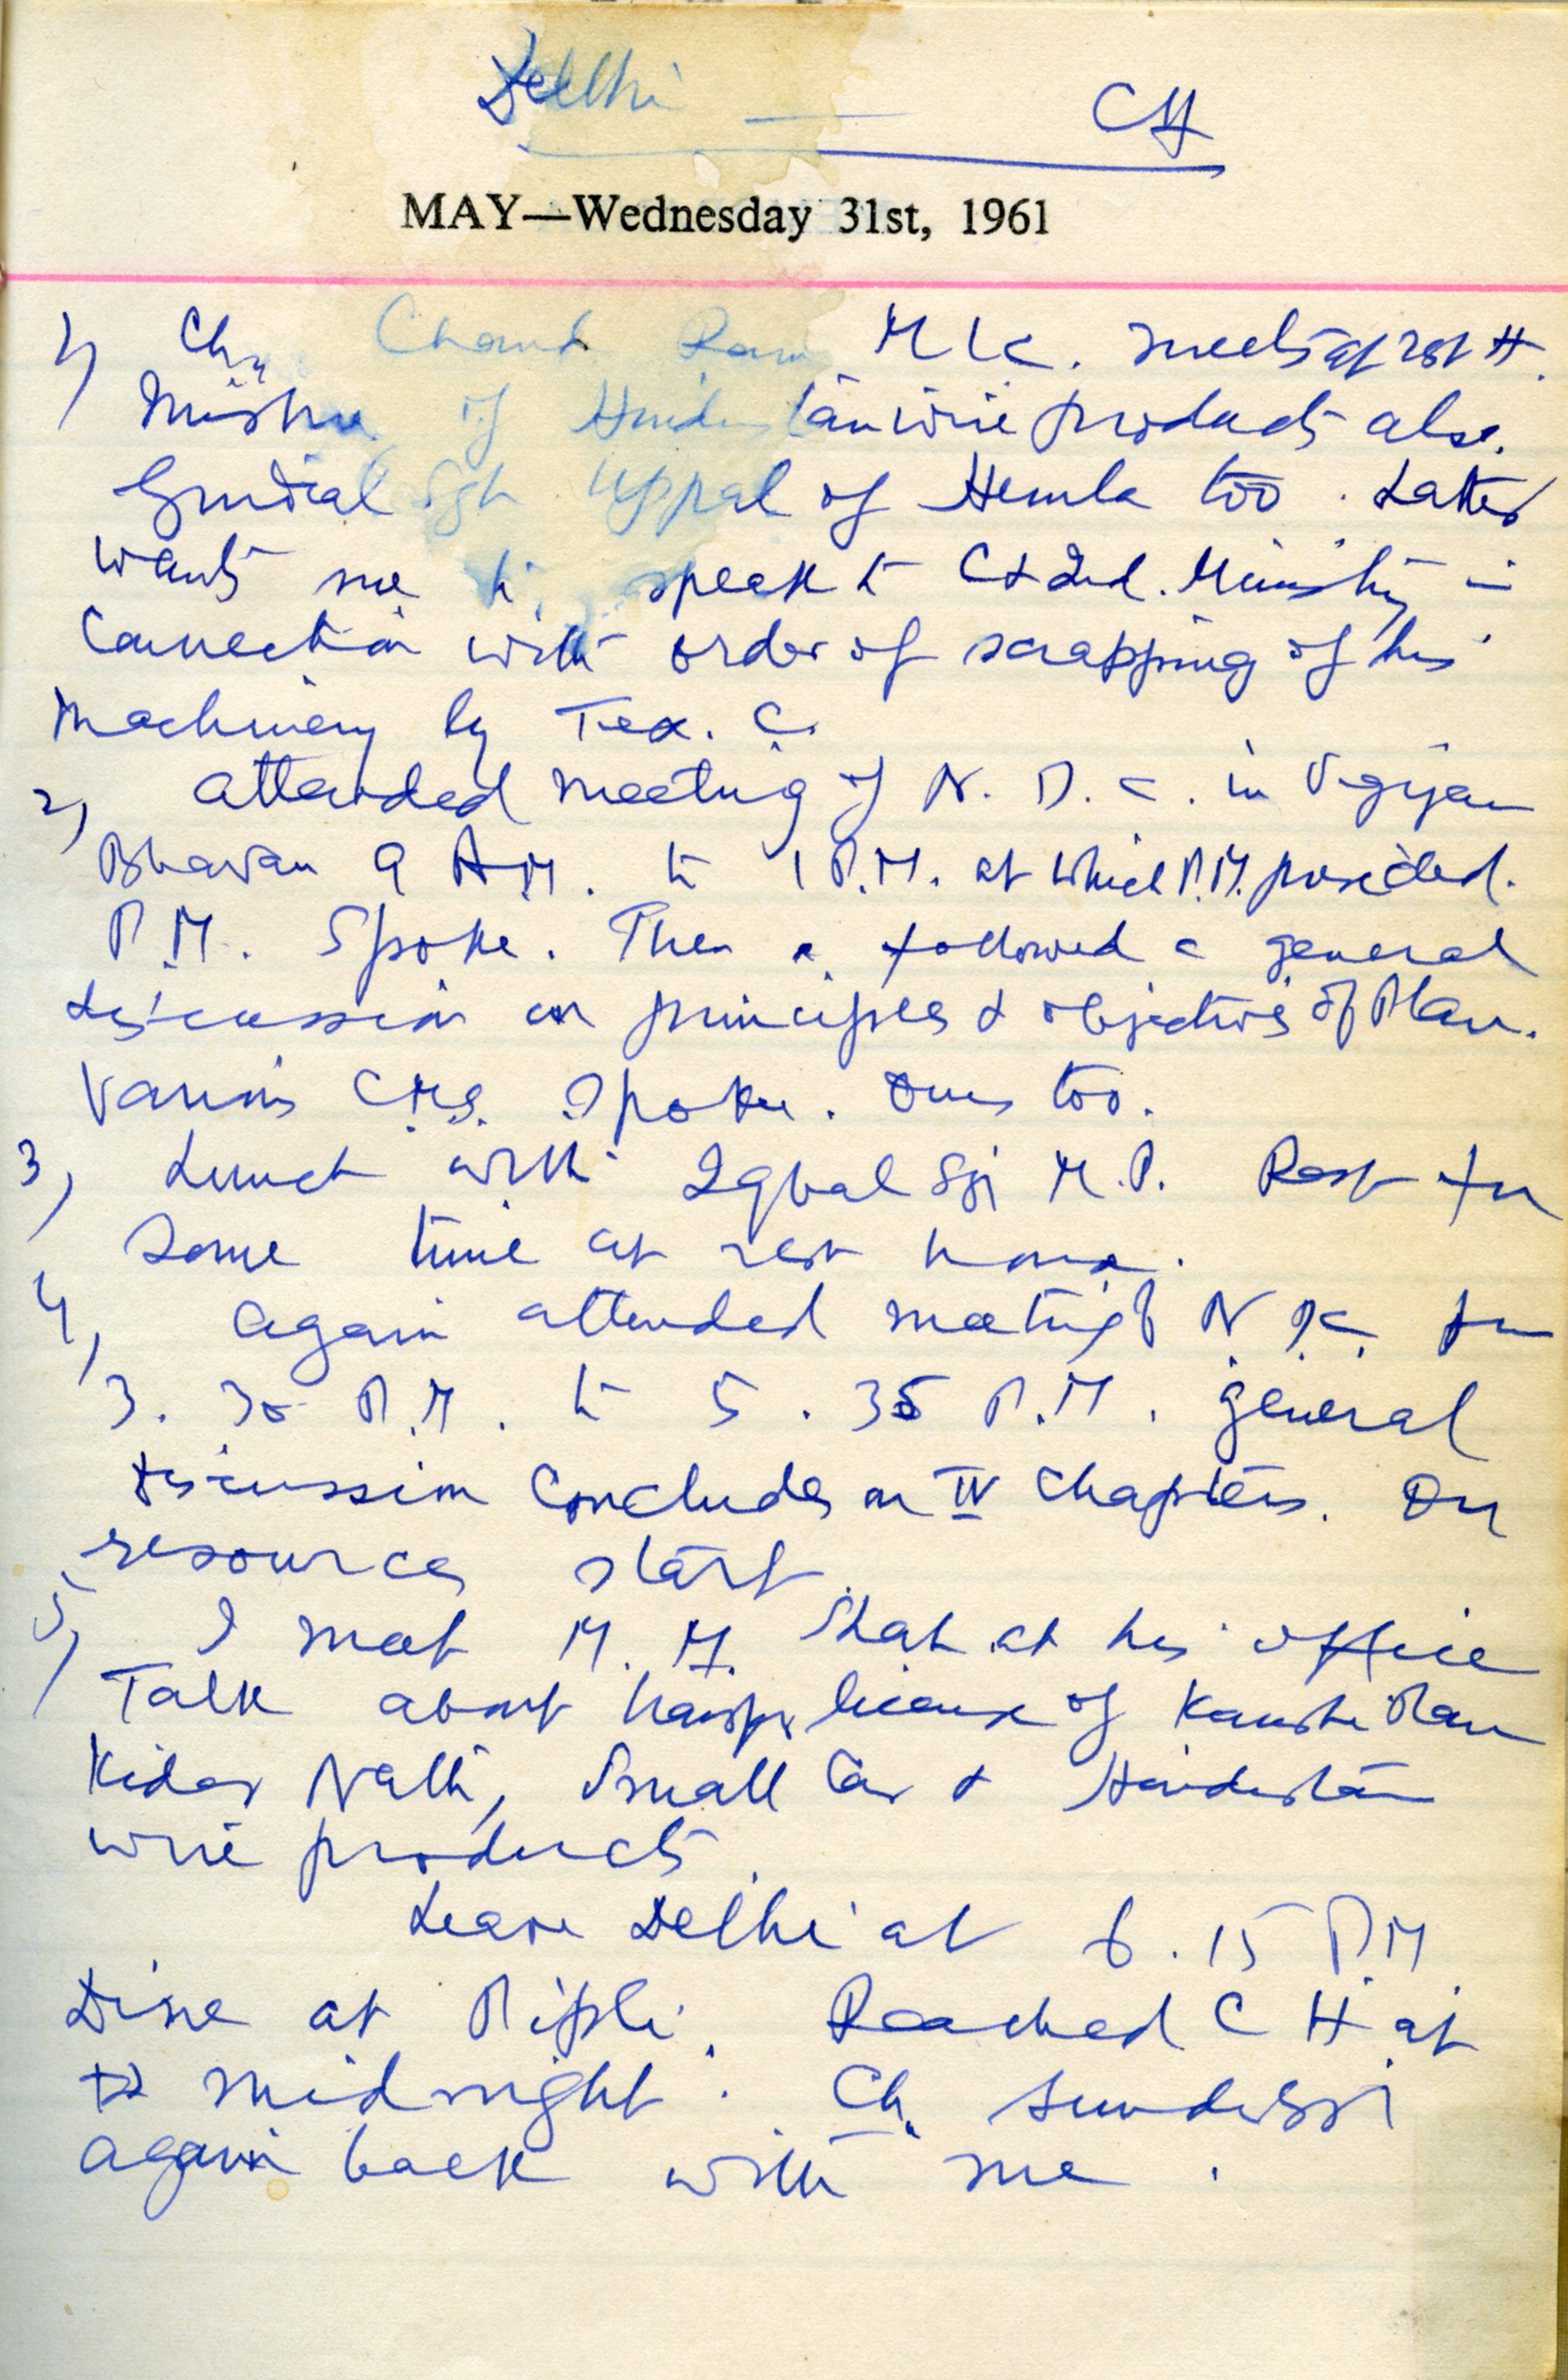 Delhi — CH
MAY—Wednesday 31st, 1961
1) Ch. Chand Ram MLC. meets at rest H.
Mishra of Hindustan wire products also.
Gurdial Sgh Uppal of Hemla too. Latter
wants me to speak to C & Ind. Ministry in
Connection with order of scrapping of his
Machinery by Tex. C.
2) attended meeting of N. D. C. in Vigyan
Bhavan 9 A.M. to 1 P.M. at which P.M. presided.
P.M. Spoke. Then followed a general
discussion on principles & objectives of Plan.
Various C.Ms. Spoke. Ours too.
3) Lunch with Iqbal Sgh M.P. Rest for
Some time at rest house.
4) again attended meeting of N. D. C. from
3.30 P.M. to 5.35 P.M. general
discussion concludes on IV Chapters. On
resources start.
5) I meet M. M. Shah at his office
Talk about license of Ram
Kidar Nath, Small Car & Hindustan
wire products.
Leave Delhi at 6.15 P.M.
Dine at Pipli. Reached C H at
midnight. Ch.
again back with me.